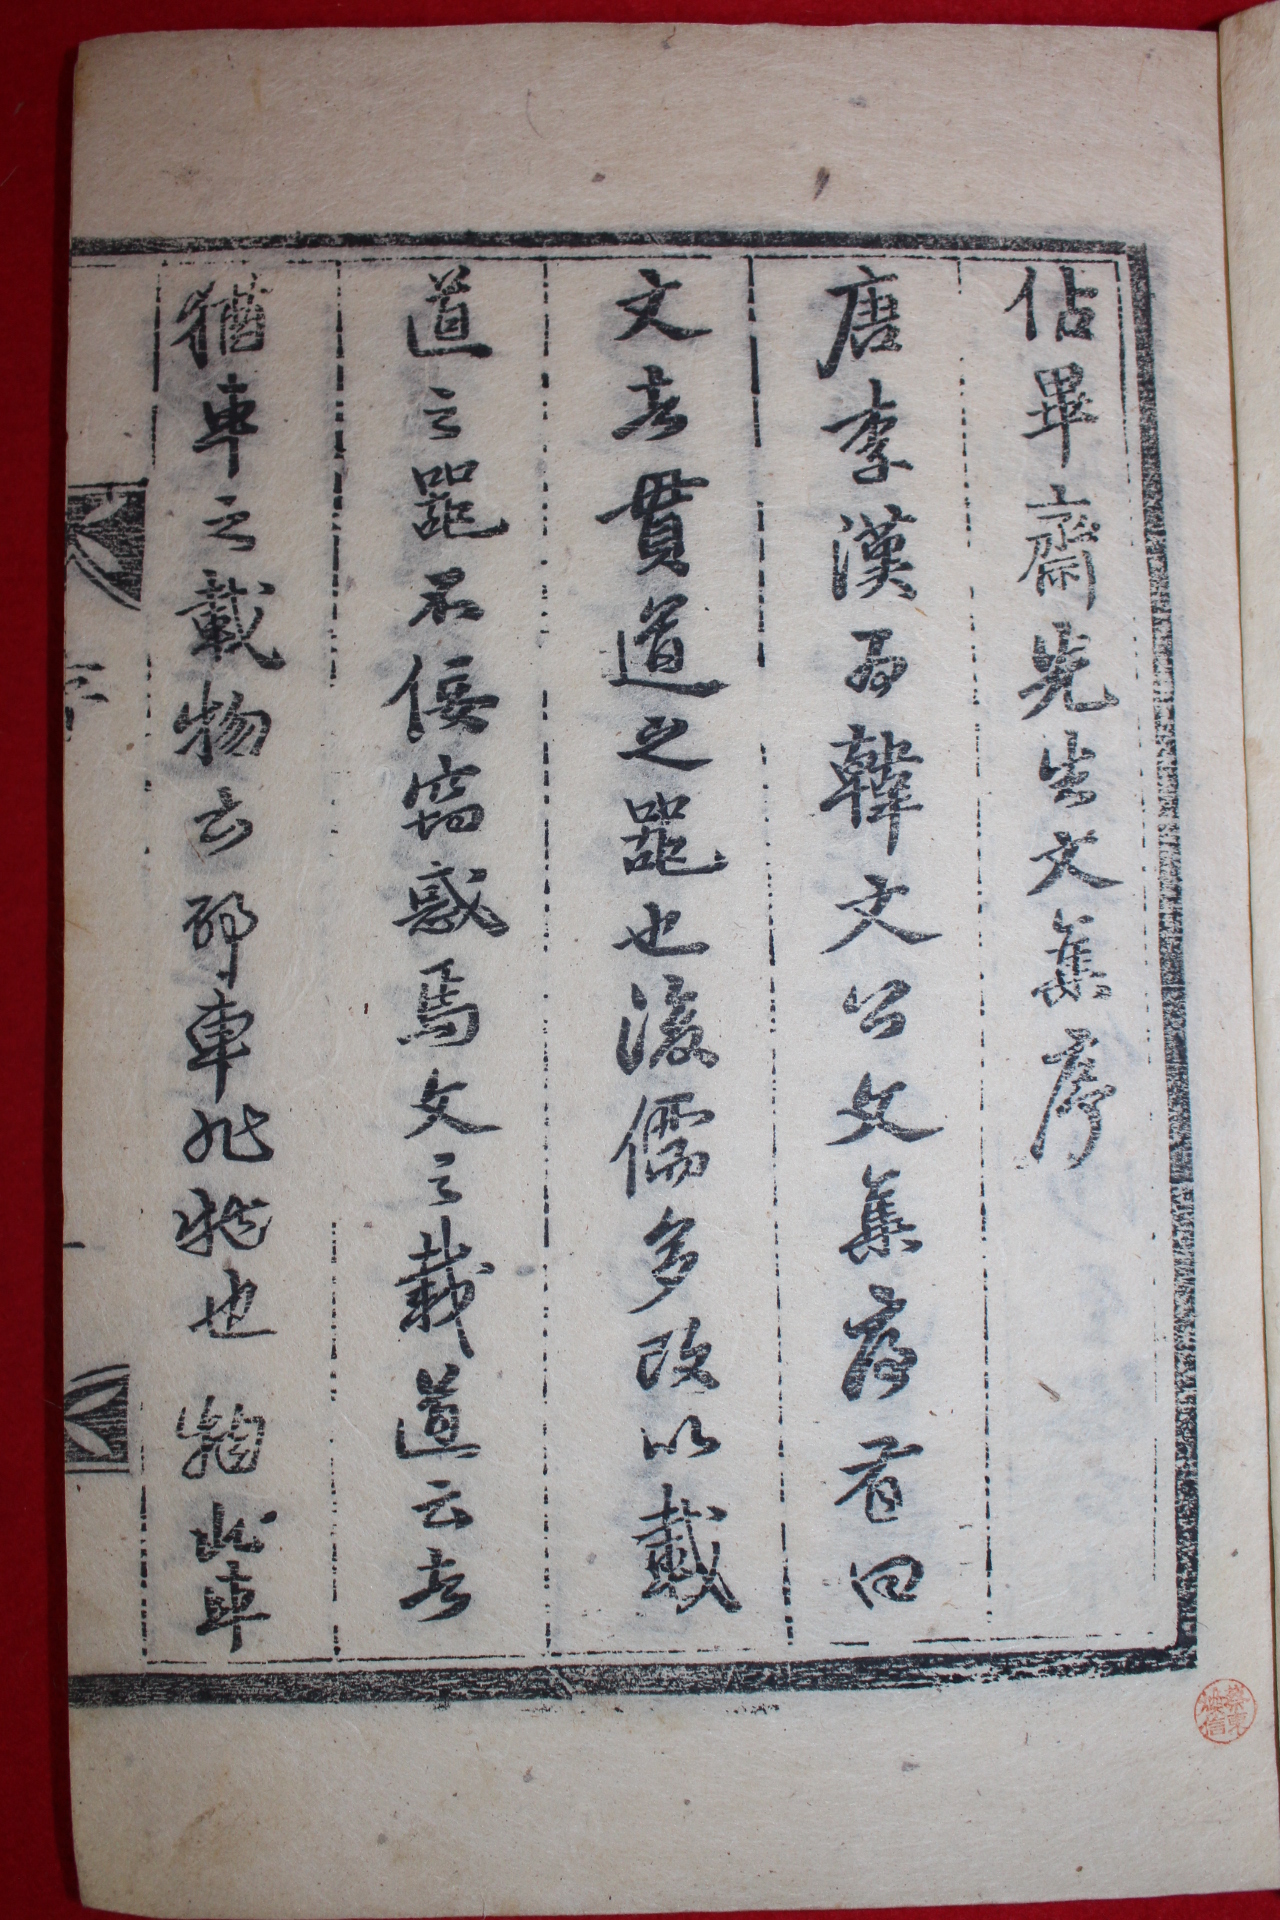 佔畢齋先生文集序
唐李漢爲韓文公文集序有曰
文者貫道之器也後儒多改以載
道之器不佞竊惑焉文之載道云者
猶車之載物云耶車非物也物此車
序
一